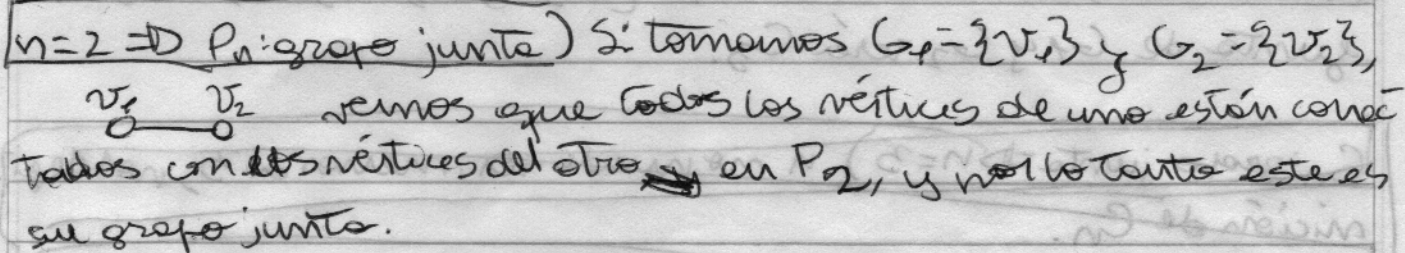 n=2 ⇒ Pn: grafo junta) Si tomamos G₁={v₁} y G₂={v₂},
v₁ v₂ vemos que todos los vértices de uno están conec
tados con los vértices del otro en P₂, y por lo tanto este es
su grafo junta.